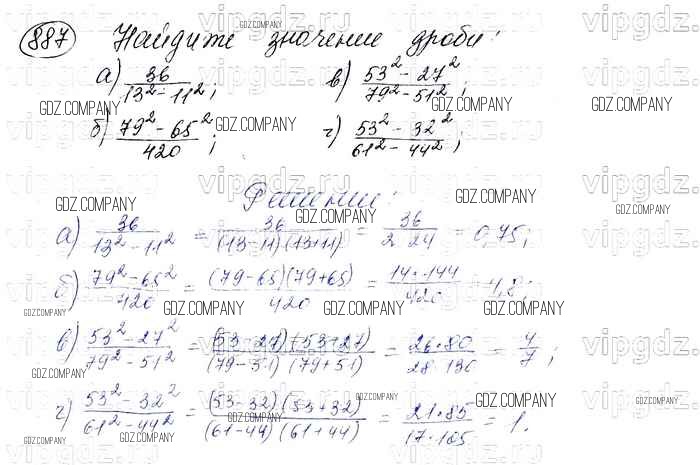 887 Найдите значение дроби:
а) 36/(13² - 11²); в) (53² - 27²)/(79² - 51²);
б) (79² - 65²)/420; г) (53² - 32²)/(61² - 44²);
Решение:
а) 36/(13² - 11²) = 36/((13-11)(13+11)) = 36/(2·24) = 0,75;
б) (79² - 65²)/420 = ((79-65)(79+65))/420 = (14·144)/420 = 4,8;
в) (53² - 27²)/(79² - 51²) = ((53-27)(53+27))/((79-51)(79+51)) = (26·80)/(28·130) = 4/7;
г) (53² - 32²)/(61² - 44²) = ((53-32)(53+32))/((61-44)(61+44)) = (21·85)/(17·105) = 1.
GDZ.COMPANY
vipgdz.ru